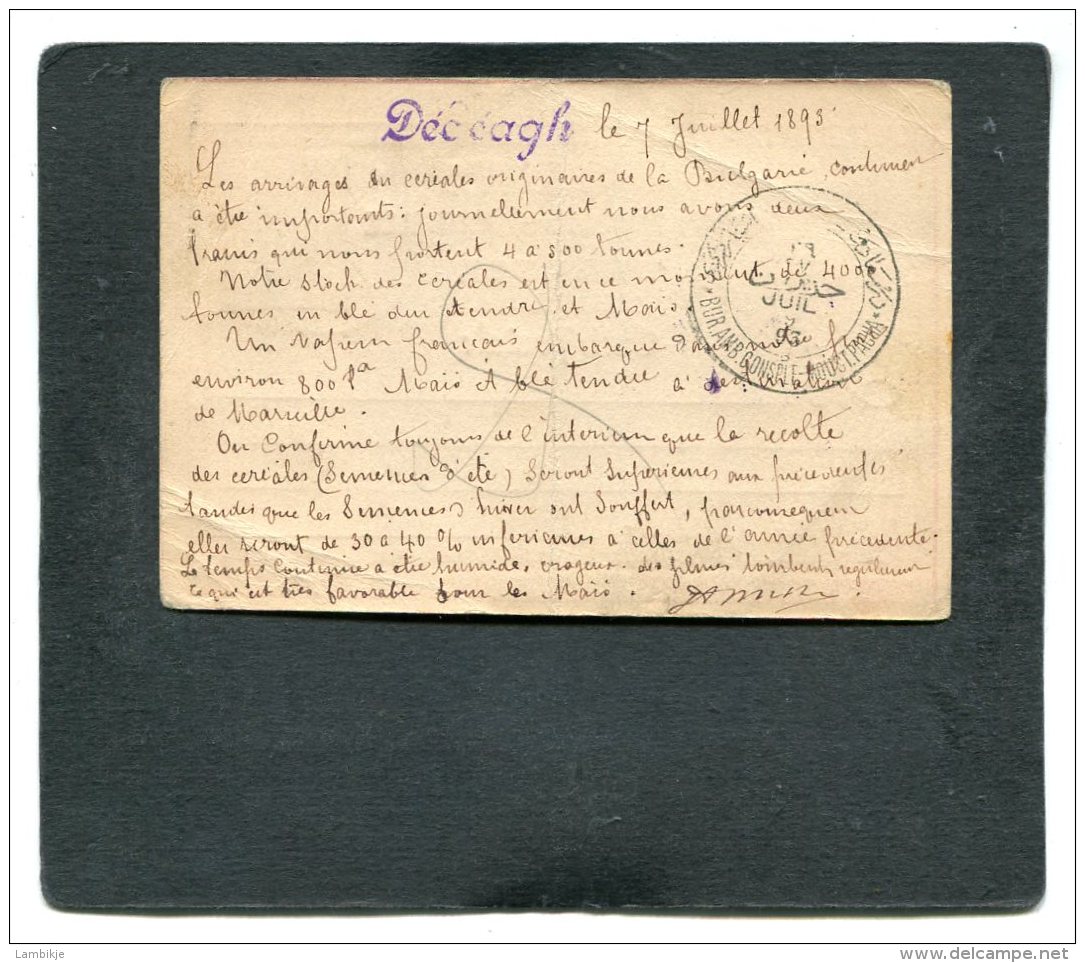 Dédéagh le 7 Juillet 1893
Les arrivages en céréales originaires de la Bulgarie continuent
à être importants: journellement nous avons deux
trains qui nous portent 4 à 500 tonnes.
Notre stock des céréales est en ce moment de 4000
tonnes en blé dur tendre et Maïs.
Un vapeur français embarque
environ 800 Maïs & blé tendre à destination
de Marseille.
On Confirme toujours de l'interieur que la recolte
des cereales (Semences d'été) Seront Superieures aux précédentes
tandis que les Semences d'hiver ont Souffert, par consequent
elles seront de 30 à 40 % inferieures à celles de l'année précédente.
Le temps continue a être humide, orageux. des pluies tombent regulierement
ce qui est très favorable pour les Maïs.
JUIL
93
BUR. AMB. CONSPLE-
Lambikje
delcampe.net